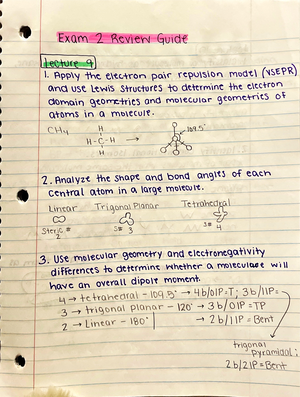 Exam 2 Review Guide
Lecture 9
1. Apply the electron pair repulsion model (VSEPR)
and use Lewis Structures to determine the electron
domain geometries and molecular geometries of
atoms in a molecule.
CH4
H
H-C-H
H
→
109.5°
2. Analyze the shape and bond angles of each
central atom in a large molecule.
Linear Trigonal Planar Tetrahedral
Steric #
2
S# 3
S# 4
3. Use molecular geometry and electronegativity
differences to determine whether a molecule will
have an overall dipole moment.
4 → tetrahedral - 109.5° → 4b/0lP=T; 3b/1lP=
3 → trigonal planar - 120° → 3b/0lP=TP
2 → Linear - 180° → 2b/1lP=Bent
trigonal
pyramidal;
2b/2lP=Bent